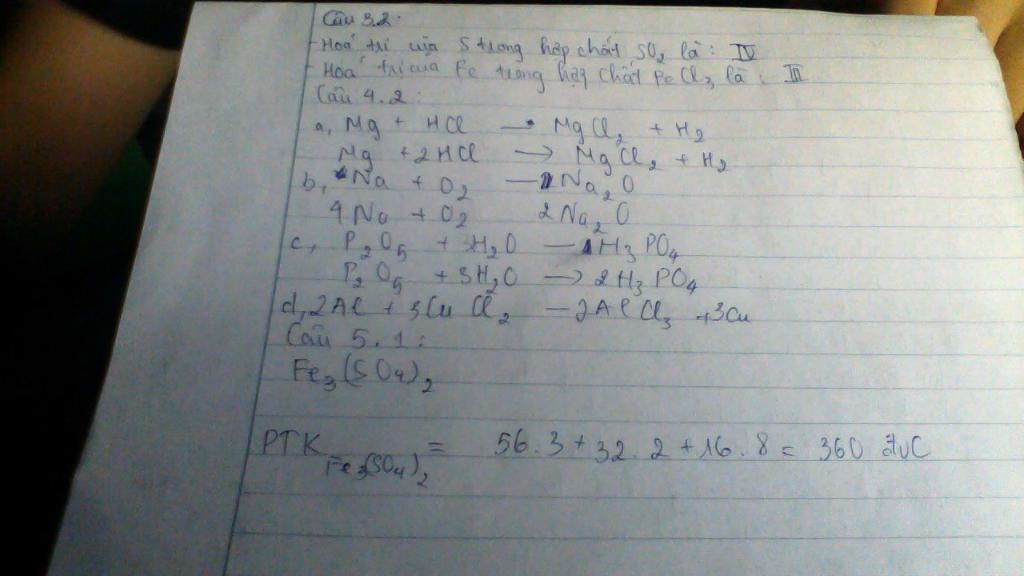 Câu 3.2:
- Hoá trị của S trong hợp chất SO₂ là: IV
- Hoá trị của Fe trong hợp chất FeCl₃ là: III
Câu 4.2:
a, Mg + HCl → MgCl₂ + H₂
Mg + 2HCl → MgCl₂ + H₂
b, Na + O₂ — Na₂O
4Na + O₂ 2Na₂O
c, P₂O₅ + 3H₂O — H₃PO₄
P₂O₅ + 3H₂O → 2H₃PO₄
d, 2Al + 3CuCl₂ — 2AlCl₃ + 3Cu
Câu 5.1:
Fe₃(SO₄)₂
PTK Fe₃(SO₄)₂ = 56.3 + 32.2 + 16.8 = 360 đvC